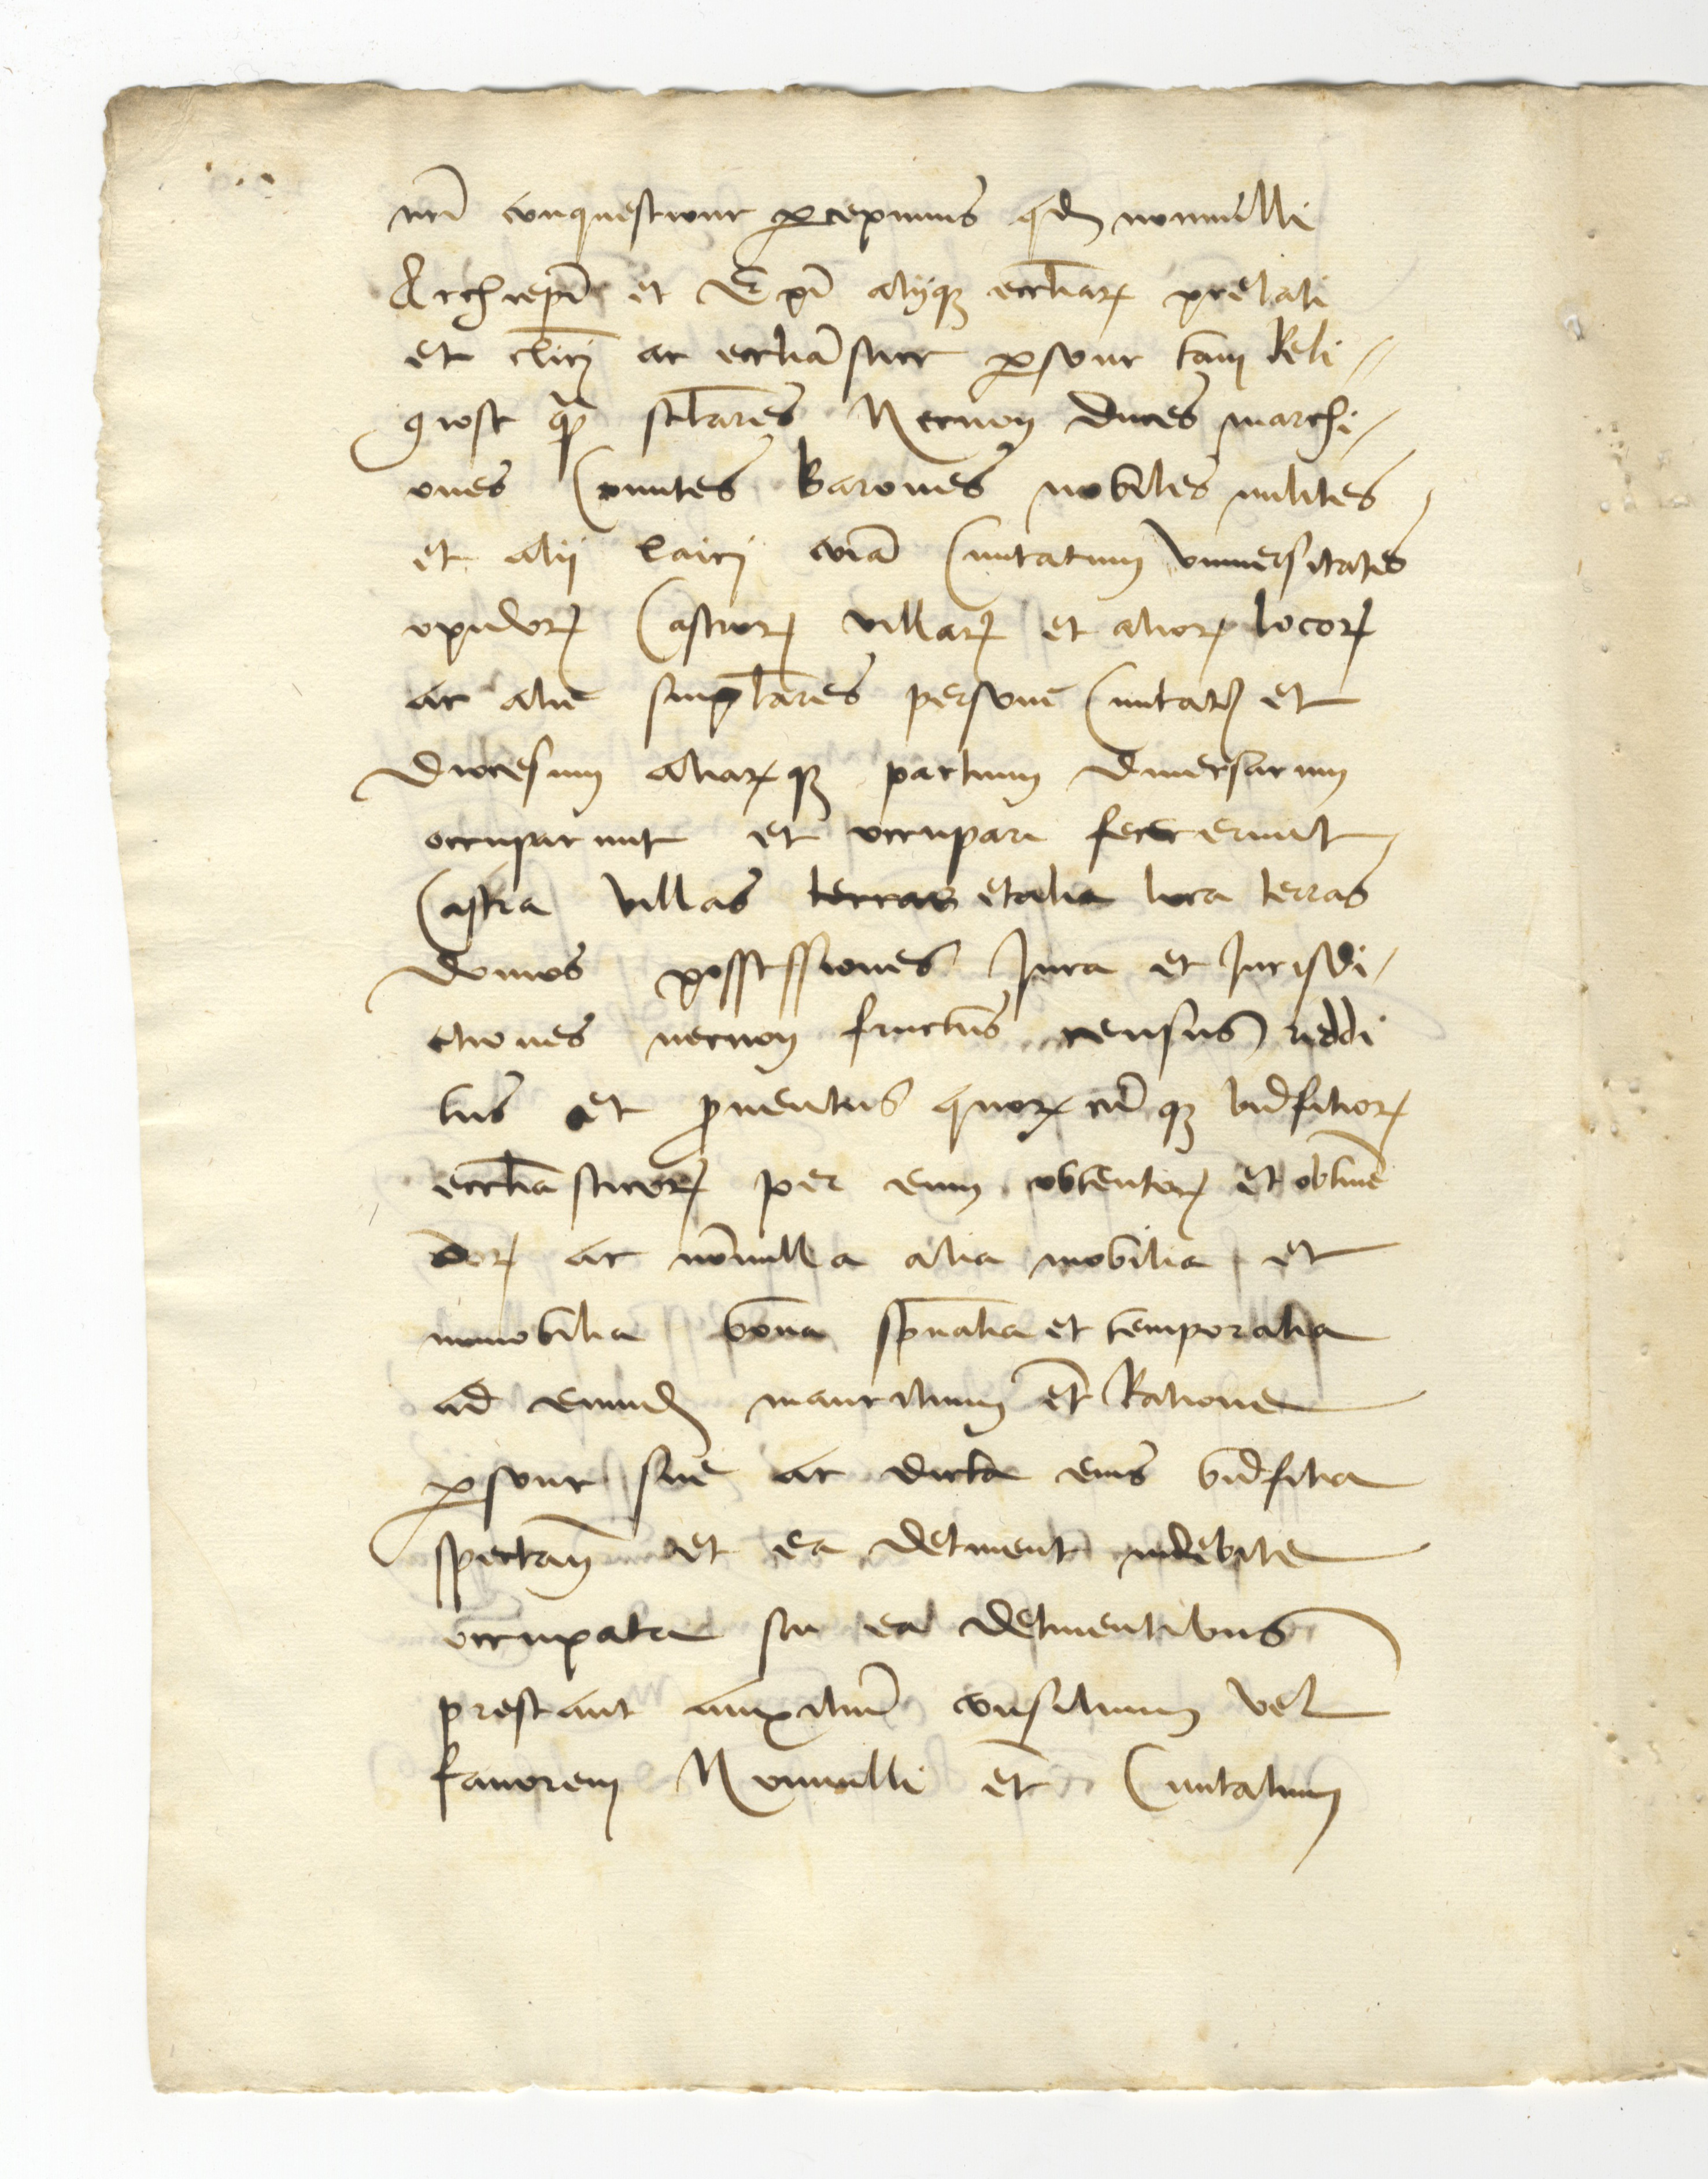 nrī conquestione ꝑcepimus qđ nonnulli
Archiepī et Epī alijq̨ eccliaꝝ prelati
et clici ac eccliāstice ꝑsone tam Reli-
giose qͣ sclares Necnon Duces marchi-
ones Comites Barones nobiles milites
et alii laici coīa Ciuitatum vniuersitates
opidoꝝ Castroꝝ villaꝝ et alioꝝ locoꝝ
ac alie singlares persone Ciuitatꝫ et
Diocesum aliaꝝq̨ partium Diuersarum
occuparunt et occupari fecerunt
Castra villas terras et alia loca terras
domos possessiones Jura et Jurisdi-
ctiones necnon fructus census reddi
tus et ꝓuentus quoꝝcūq̨ bn̄ficioꝝ
eccliasticoꝝ per eum obtentoꝝ et obtinē
doꝝ ac nōnulla alia mobilia et
immobilia bona spūalia et temporalia
ad eumdē mauritium et Ratione
ꝑsone sue ac dicta eius bn̄ficia
spectan̄ et ea detinent indebite
occupata seu ea detinentibus
prestant auxiliū consilium vel
fauorem Nonnulli et̄ Ciuitatum